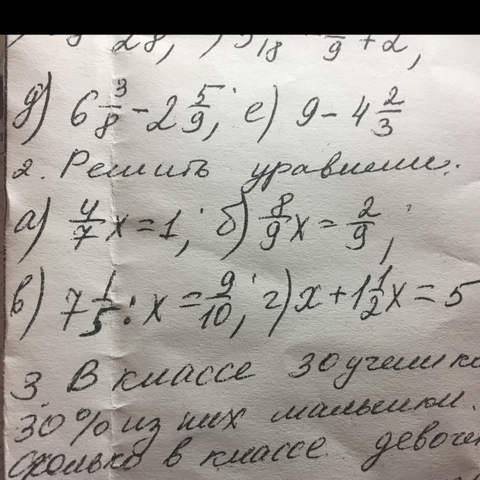 28, 5/18 /9 + 2,
д) 6 3/8 - 2 5/9; е) 9 - 4 2/3
2. Решить уравнение.
а) 4/7 x = 1; б) 8/9 x = 2/9;
в) 7 1/5 : x = 9/10; г) x + 1 1/2 x = 5
3. В классе 30 ученико
30% из них мальчики.
Сколько в классе девоче